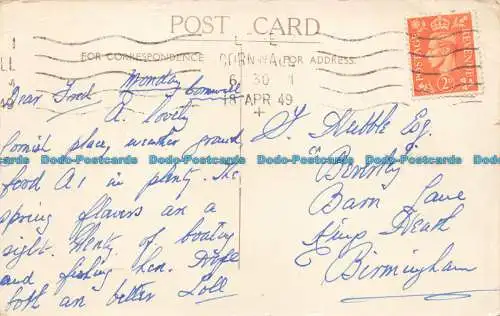 POST CARD
FOR CORRESPONDENCE
FOR ADDRESS.
CORNWALL
6 30
18 APR 49
POSTAGE REVENUE
2D
Monday
Cornwall
Dear Fred
A lovely
Cornish place, weather grand
food A1 in plenty. The
spring flowers are a
sight. Plenty of boating
and fishing here. Hope
both are better Loll
F. Hubble Esq.
"Beverley"
Barn Lane
Kings Heath
Birmingham
Bodo-Postcards Bodo-Postcards Bodo-Postcards